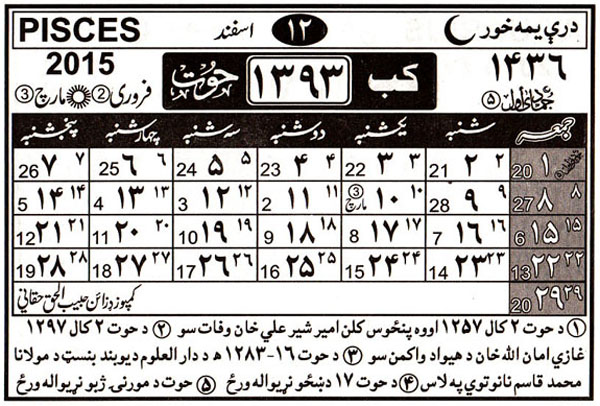 درې یمه خور ۱۲ اسفند PISCES
۱۴۳۶ کب ۱۳۹۳ حوت 2015
جمادی اول ۵ فروري ② مارچ ③
جمعه شنبه یکشنبه دوشنبه سه شنبه چهارشنبه پنجشنبه
۱ 20 ۲ ۲ 21 ۳ ۳ 22 ۴ ۴ 23 ۵ ۵ 24 ۶ ۶ 25 ۷ ۷ 26
۸ ۸ 27 ۹ ۹ 28 ۱۰ ۱۰ مارچ ③ ۱۱ ۱۱ 2 ۱۲ ۱۲ 3 ۱۳ ۱۳ 4 ۱۴ ۱۴ 5
۱۵ ۱۵ 6 ۱۶ ۱۶ 7 ۱۷ ۱۷ 8 ۱۸ ۱۸ 9 ۱۹ ۱۹ 10 ۲۰ ۲۰ 11 ۲۱ ۲۱ 12
۲۲ ۲۲ 13 ۲۳ ۲۳ 14 ۲۴ ۲۴ 15 ۲۵ ۲۵ 16 ۲۶ ۲۶ 17 ۲۷ ۲۷ 18 ۲۸ ۲۸ 19
۲۹ ۲۹ 20 کمپوز ډزائن حبیب الحق حقاني
① د حوت ۲ کال ۱۲۵۷ اووه پنځوس کلن امیر شیر علي خان وفات سو ② د حوت ۲ کال ۱۲۹۷
غازي امان الله خان د هیواد واکمن سو ③ حوت ۱۶-۱۲۸۳ هـ د دار العلوم دیوبند بنسټ د مولانا
محمد قاسم نانوتوي په لاس ④ د حوت ۱۷ د ښځو نړیواله ورځ ⑤ حوت د مورنۍ ژبو نړیواله ورځ